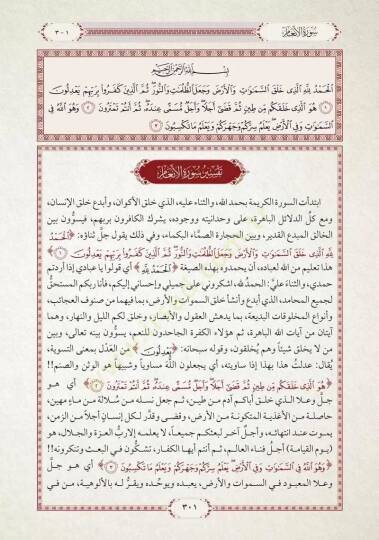 سورة الأنعام
٣٠١
بسم الله الرحمن الرحيم
الْحَمْدُ لِلَّهِ الَّذِي خَلَقَ السَّمَاوَاتِ وَالْأَرْضَ وَجَعَلَ الظُّلُمَاتِ وَالنُّورَ ثُمَّ الَّذِينَ كَفَرُوا بِرَبِّهِمْ يَعْدِلُونَ
﴿١﴾ هُوَ الَّذِي خَلَقَكُم مِّن طِينٍ ثُمَّ قَضَى أَجَلًا وَأَجَلٌ مُّسَمًّى عِندَهُ ثُمَّ أَنتُمْ تَمْتَرُونَ ﴿٢﴾ وَهُوَ اللَّهُ فِي
السَّمَاوَاتِ وَفِي الْأَرْضِ يَعْلَمُ سِرَّكُمْ وَجَهْرَكُمْ وَيَعْلَمُ مَا تَكْسِبُونَ ﴿٣﴾
تفسير سورة الأنعام
ابتدأت السورة الكريمة بحمد الله، والثناء عليه، الذي خلق الأكوان، وأبدع خلق الإنسان،
ومع كلِّ الدلائل الباهرة، على وحدانيته ووجوده، يشرك الكافرون بربهم، فيسوُّون بين
الخالق المبدع القدير، وبين الحجارة الصمَّاء البكماء، وفي ذلك يقول جلَّ ثناؤه: ﴿الْحَمْدُ
لِلَّهِ الَّذِي خَلَقَ السَّمَاوَاتِ وَالْأَرْضَ وَجَعَلَ الظُّلُمَاتِ وَالنُّورَ ثُمَّ الَّذِينَ كَفَرُوا بِرَبِّهِمْ يَعْدِلُونَ ﴿١﴾﴾
هذا تعليم من الله لعباده، أن يحمدوه بهذه الصيغة ﴿الْحَمْدُ لِلَّهِ﴾ أي قولوا يا عبادي إذا أردتم
حمدي، والثناء عليَّ: الحمدُ لله، اشكروني على جميلي وإحساني إليكم، فأنا ربكم المستحقُّ
لجميع المحامد، الذي أبدع وأنشأ خلق السموات والأرض، بما فيهما من صنوف العجائب،
وأنواع المخلوقات البديعة، بما يدهش العقول والأبصار، وخلق لكم الليل والنهار، وهما
آيتان من آيات الله الباهرة، ثم هؤلاء الكفرة الجاحدون للنعم، يسوُّون بينه تعالى، وبين
من لا يخلق شيئاً وهم يُخلقون، وقوله سبحانه: ﴿يَعْدِلُونَ﴾ من العَدْل بمعنى التسوية،
يُقال: عدلتُ هذا بهذا إذا ساويته، أي يجعلون اللَّهَ مساوياً وشبيهاً هو الوثن والصنم!!
﴿هُوَ الَّذِي خَلَقَكُم مِّن طِينٍ ثُمَّ قَضَى أَجَلًا وَأَجَلٌ مُّسَمًّى عِندَهُ ثُمَّ أَنتُمْ تَمْتَرُونَ ﴿٢﴾﴾ أي هو
جلَّ وعلا الذي خلق أباكم آدم من طين، ثم جعل نسله من سُلالة من ماء مهين،
حاصلة من الأغذية المتكونة من الأرض، وقضى وقدَّر لكل إنسان أجلاً من الزمن،
يموت عند انتهائه، وأجلٌ آخر لبعثكم جميعاً، لا يعلمه إلا ربُّ العزة والجلال، هو
(يوم القيامة) أجلُ فناء العالم، ثم أنتم أيها الكفار، تشكُّون في البعث وتنكرونه!!
﴿وَهُوَ اللَّهُ فِي السَّمَاوَاتِ وَفِي الْأَرْضِ يَعْلَمُ سِرَّكُمْ وَجَهْرَكُمْ وَيَعْلَمُ مَا تَكْسِبُونَ ﴿٣﴾﴾ أي هو جلَّ
وعلا المعبود في السموات والأرض، يعبده ويوحِّده ويقرُّ له بالألوهية، من في
٣٠١